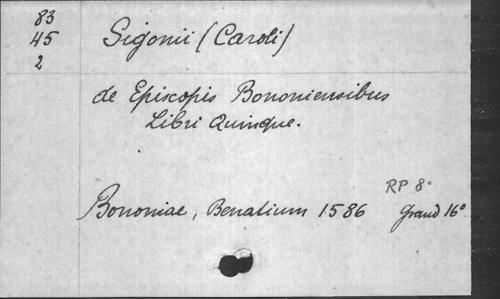 83
45
2
Sigonii (Caroli)
de Episcopis Bononiensibus
Libri Quinque.
RP 8°
Bononiae, Benatium 1586 Grand 16°